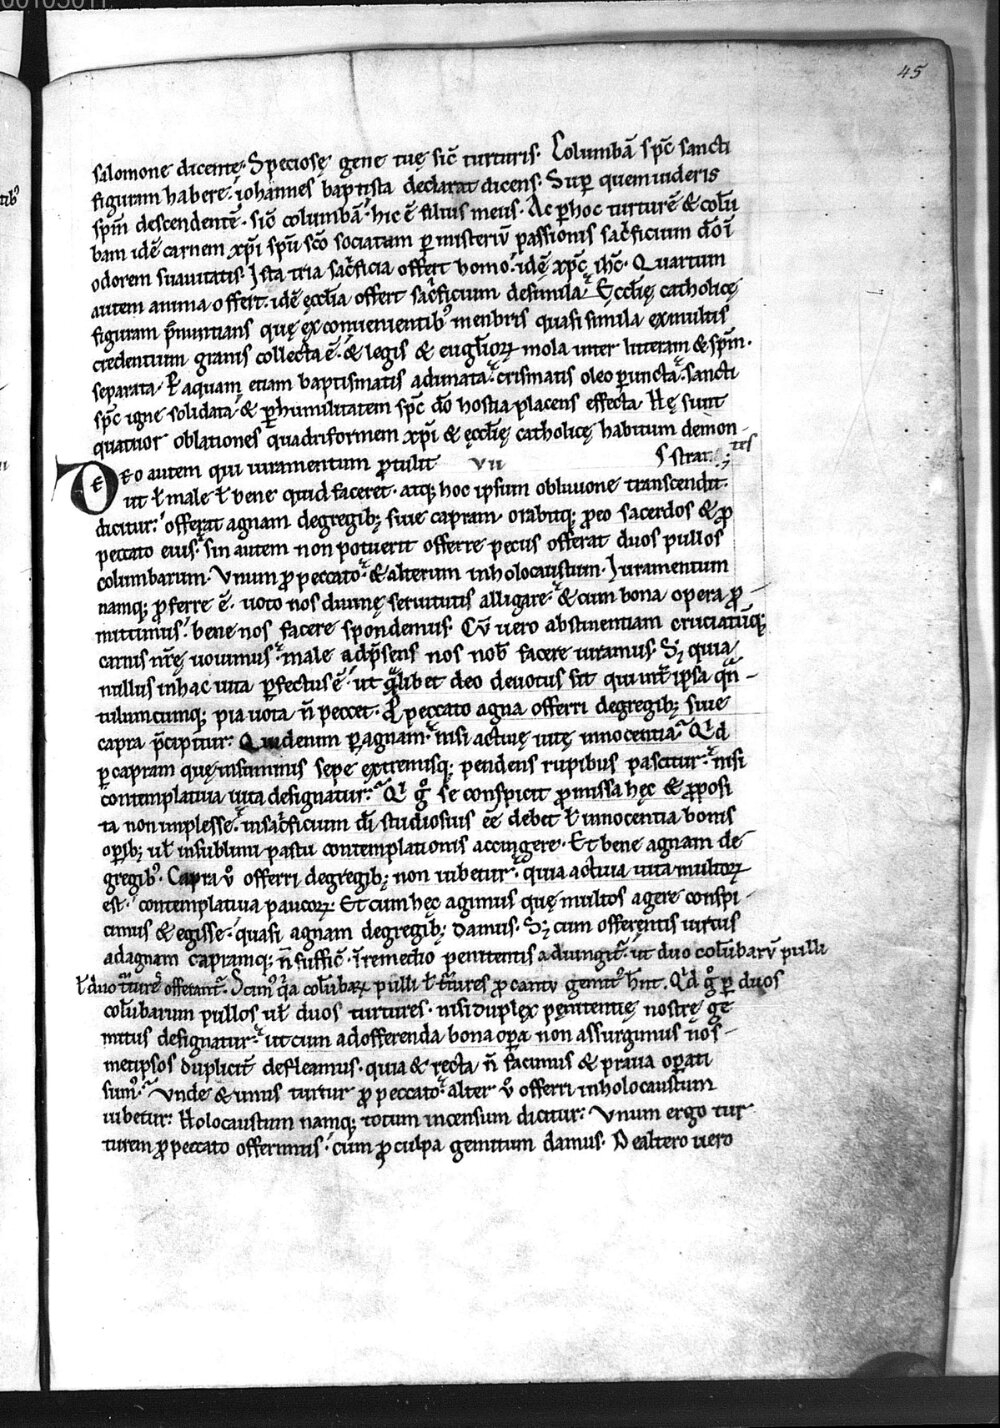 45
salomone dicente. Speciosę gene tuę sic̄ turturis. Columbā sp̄c sancti
figuram habere. iohannes baptista declarat dicens. Sup̱ quem uideris
sp̄m descendentē. sic̄ columbā. hic ē filius meus. Ac p̱ hoc turturē & colū
bam idē carnem xp̄i sp̄u sc̄o sociatam p̱ misteriū passionis sac̄ficium dō ī
odorem suauitatis. Ista tria sac̄ficia offert homo. idē xp̄c ih̄c. Quartum
autem anima offert. idē ęcclīa offert sac̄ficium de simila. Ęcclīę catholicę
figuram p̄nuntians quę ex conuenientib; menbris quasi simila ex multis
credentium granis collecta ē. & legis & eugliorꝝ mola inter litteram & sp̄m.
separata. P̱ aquam etiam baptismatis adunata. crismatis oleo p̱uncta. sancti
sp̄c igne solidata. & p̱ humilitatem sp̄c dō hostia placens effecta. Hę sunt
quatuor oblationes quadriformem xp̄i & ęcclīę catholicę habitum demon-
strantes
De eo autem qui iuramentum ꝓtulit VII
ut ł male ł bene quid faceret. atq; hoc ipsum obliuione transcendit.
dicitur. offerat agnam de gregib; siue capram. orabitq; ꝓ eo sacerdos & ꝓ
peccato eius. sin autem non potuerit offerre pecus offerat duos pullos
columbarum. Vnum ꝓ peccato. & alterum in holocaustum. Iuramentum
namq; ꝓferre ē. uoto nos diuinę seruitutis alligare. & cum bona opera ꝓ-
mittimus. bene nos facere spondemus. Cū uero abstinentiam cruciatūq;
carnis nr̄ę uouimus. male ad p̄sens nos nob̄ facere iuramus. S; quia
nullus in hac uita p̱fectus ē. ut q̄libet deo deuotus sit qui int̄ ipsa qn̄-
tulumcumq; pia uota n̄ peccet. Ꝓ peccato agna offerri de gregib; siue
capra p̄cipitur. Quid enim p̱ agnam. nisi actiuę uitę innocentia. Qͥd
p̱ capram quę in summis sepe extremisq; pendens rupibus pascitur. nisi
contemplatiua uita designatur. Qͥ g̊ se conspicit ꝓmissa hęc & ꝓposi
ta non implesse. in sac̄ficium dī studiosius ēē debet ł innocentia bonis
op̱ib; uł in sublimi pastu contemplationis accingere. Et bene agnam de
gregib;. Capra v̊ offerri de gregib; non iubetur. quia actiua uita multorꝝ
est. contemplatiua paucorꝝ. Et cum hęc agimus quę multos agere conspi-
cimus & egisse. quasi agnam de gregib; damus. S; cum offerentis uirtus
ad agnam capramq; n̄ suffic̄. in remedio penitentis adiungit̄. ut duo colūbarū pulli
ł duo t̄tures offerant̄. Scim; q̄a colūbarꝝ pulli ł t̄tures ꝓ cantu gemit; hn̄t. Qͥd g̊ p̱ duos
colūbarum pullos uł duos turtures. nisi duplex penitentię nostrę ge
mitus designatur. ut cum ad offerenda bona op̱a non assurgimus nos-
metipsos duplicit̄ defleamus. quia & recta n̄ facimus & praua op̱ati
sum;. Vnde & unus turtur ꝓ peccato. alter v̊ offerri in holocaustum
iubetur. Holocaustum namq; totum incensum dicitur. Vnum ergo tur
turem ꝓ peccato offerimus. cum ꝓ culpa gemitum damus. De altero uero